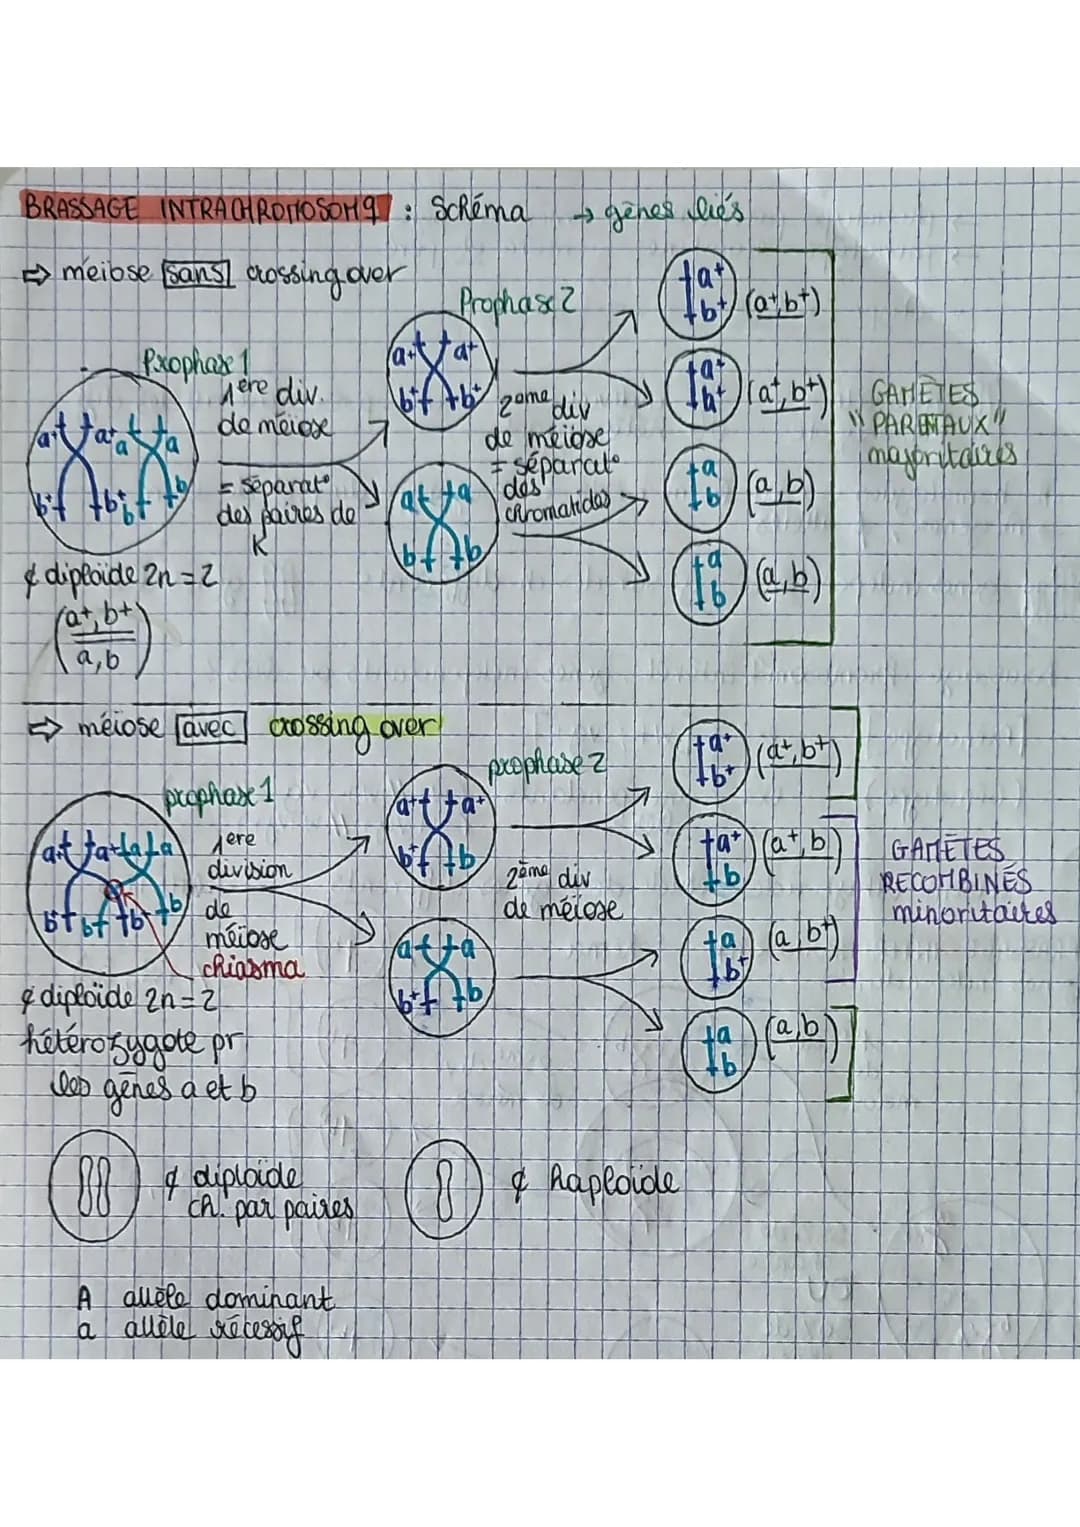 BRASSAGE INTRACHROMOSOMq : Schéma → gènes liés
⇒ méiose sans crossing over
Prophase 1
1ère div.
de méiose
= séparat°
des paires de
K
a+ a+ a a
b+ b+ b b
¢ diploïde 2n = 2
(a+, b+)
a, b
Prophase 2
a+ a+
b+ b+
a a
b b
2ème div
de méiose
= séparat°
des
chromatides
a+
b+ (a+, b+)
a+
b+ (a+, b+)
a
b (a, b)
a
b (a, b)
GAMÈTES
"PARENTAUX"
majoritaires
⇒ méiose avec crossing over
prophase 1
a+ a+ a a
b+ b b+ b
1ère
division
de
méiose
chiasma
¢ diploïde 2n = 2
hétérozygote pr
les gènes a et b
prophase 2
a+ a+
b+ b
a a
b+ b
2ème div
de méiose
a+
b+ (a+, b+)
a+
b (a+, b)
a
b+ (a, b+)
a
b (a, b)
GAMÈTES
RECOMBINÉS
minoritaires
¢ diploïde
ch. par paires
¢ haploïde
A allèle dominant
a allèle récessif